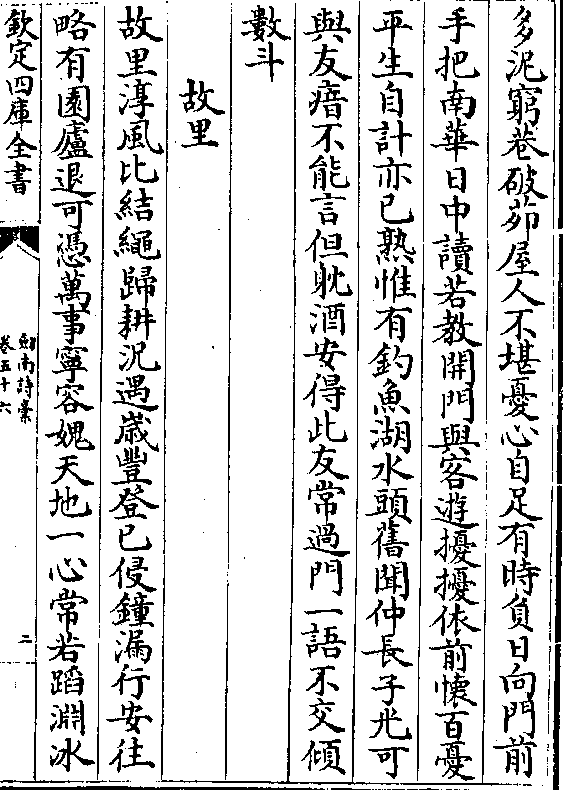 多泥窮巷破茆屋人不堪憂心自足有時負日向門前
手把南華日中讀若教開門與客遊擾擾依前懷百憂
平生自計亦已熟惟有釣魚湖水頭舊聞仲長子光可
與友瘖不能言但耽酒安得此友常過門一語不交傾
數斗
故里
故里淳風比結繩歸耕況遇歲豐登已侵鐘漏行安往
略有園廬退可憑萬事寧容媿天地一心常若蹈淵冰
欽定四庫全書
劍南詩稾
卷五十六
二